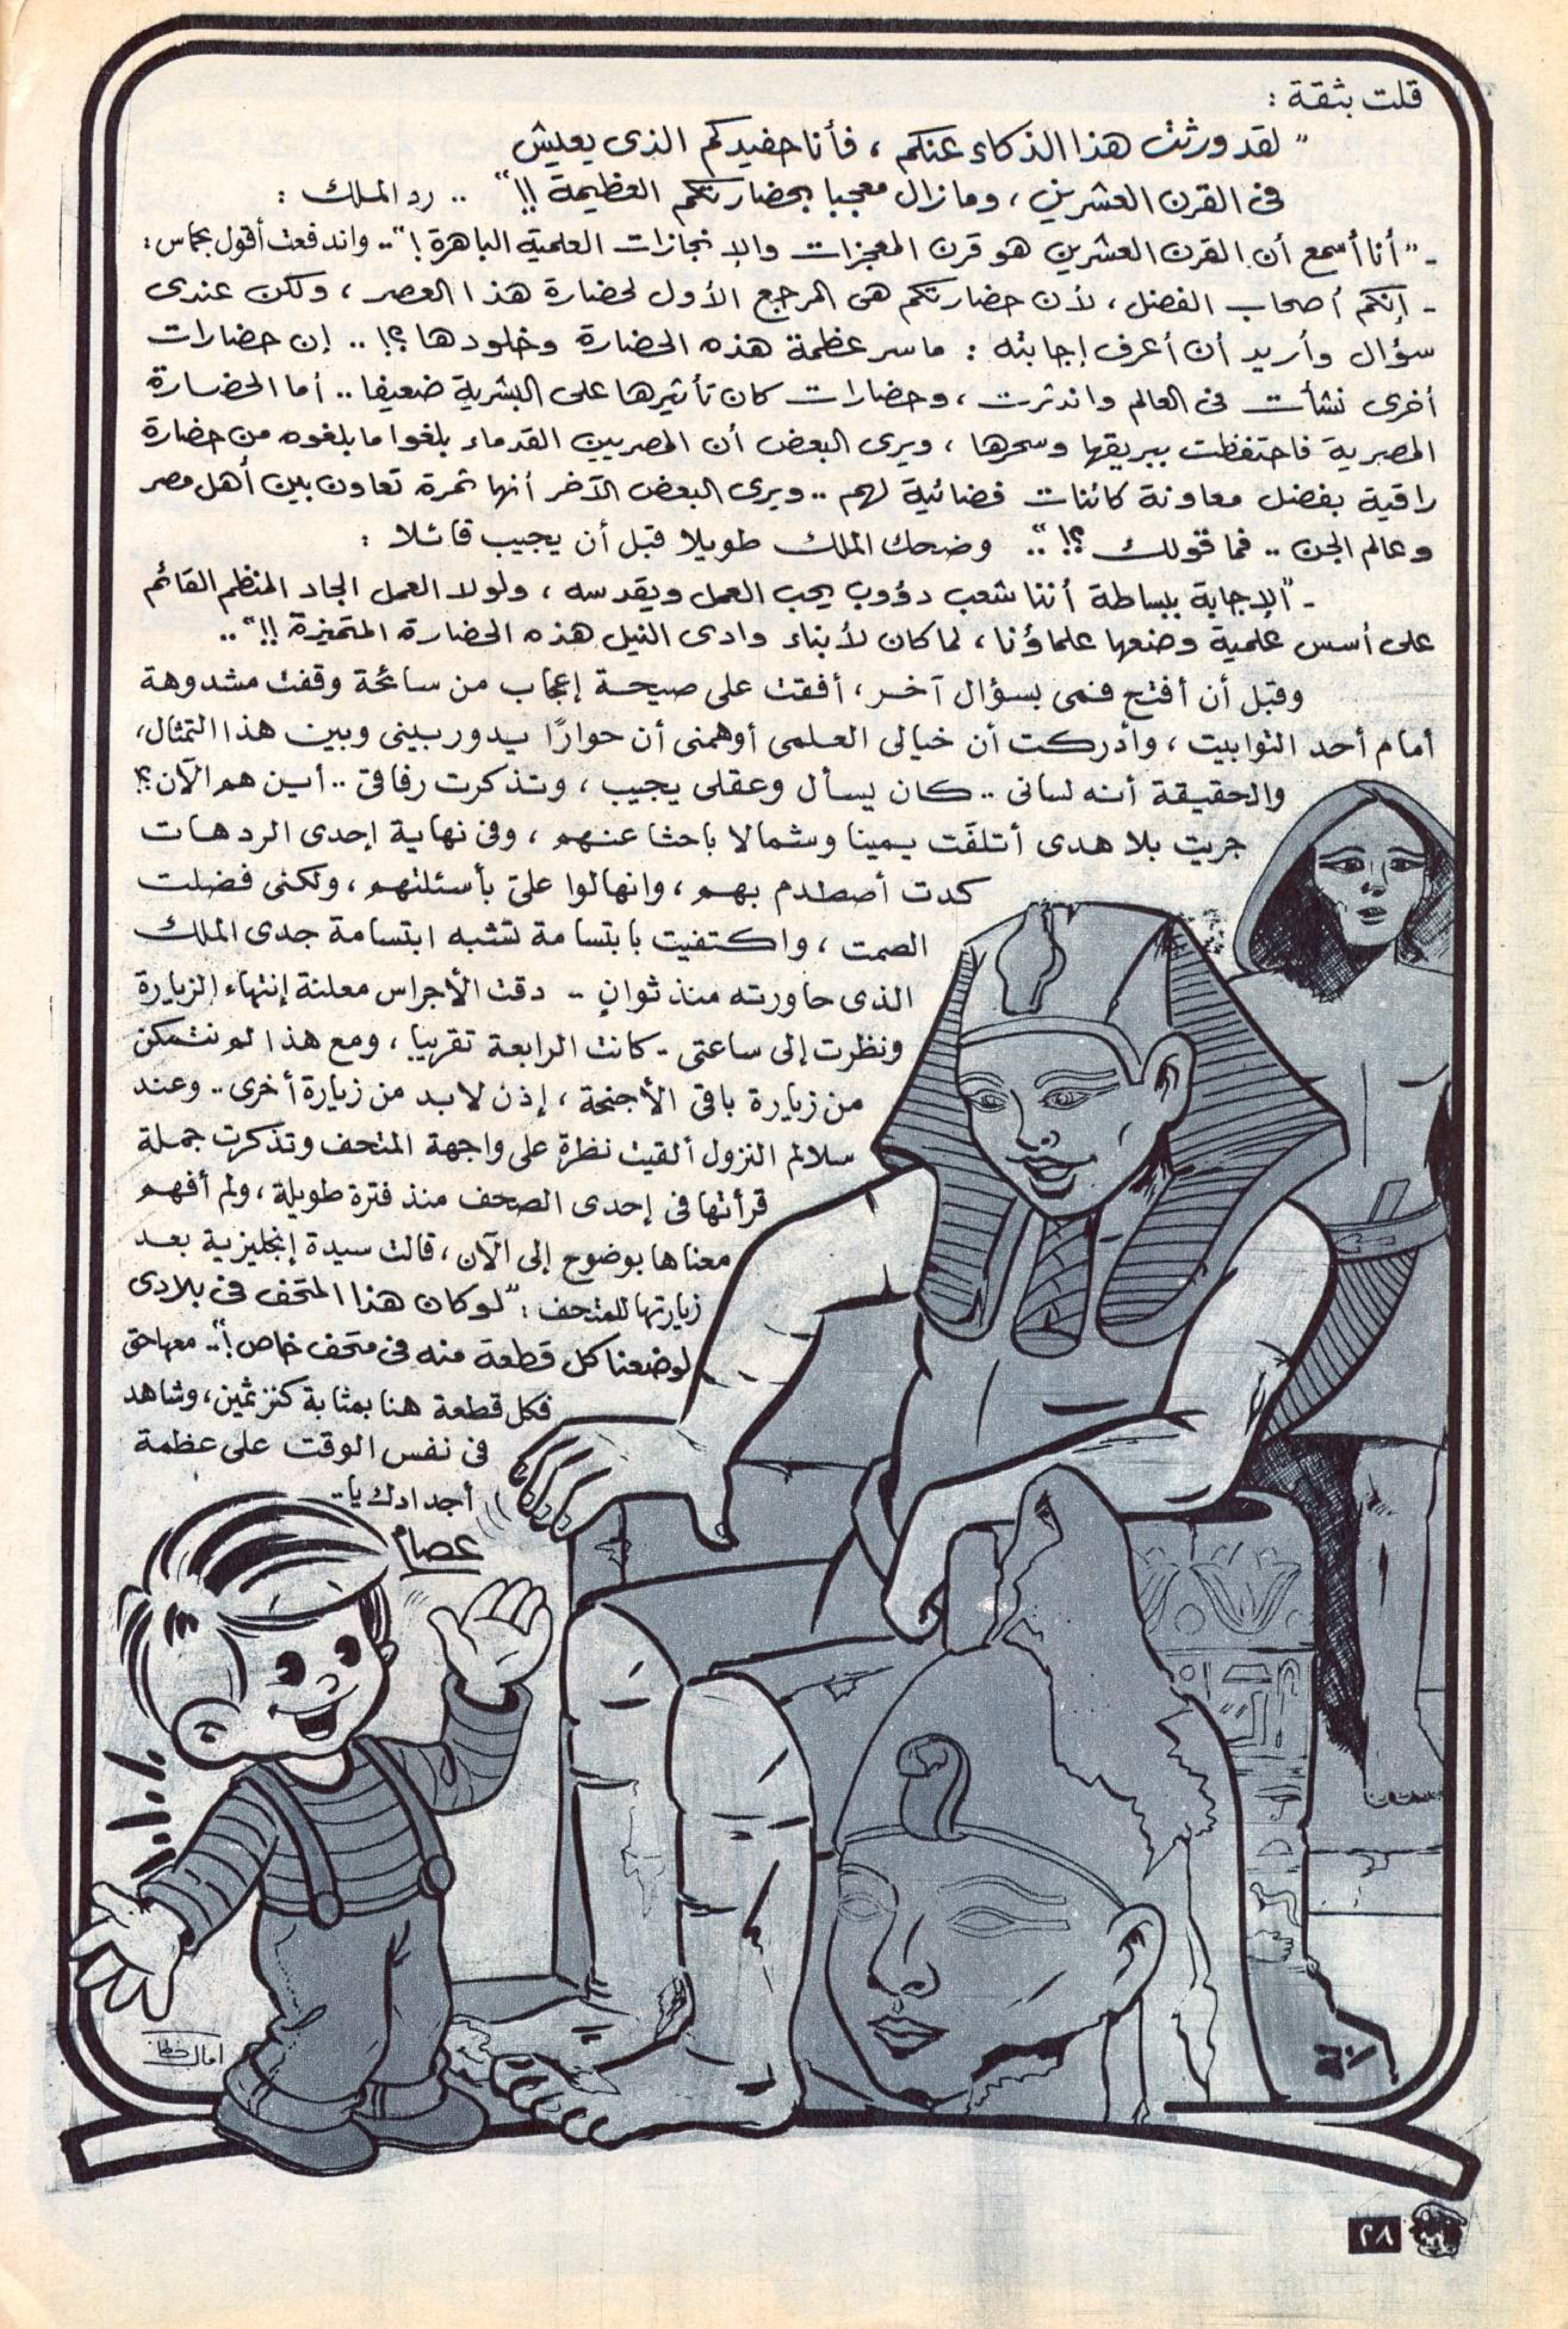 قلت بثقة :
" لقد ورثت هذا الذكاء عنكم ، فأنا حفيدكم الذى يعيش
فى القرن العشرين ، ومازال معجبا بحضارتكم العظيمة !! " .. رد الملك :
- " أنا أسمع أن القرن العشرين هو قرن المعجزات والإنجازات العلمية الباهرة ! " .. واندفعت أقول بحماس :
- إنكم أصحاب الفضل ، لأن حضارتكم هى المرجع الأول لحضارة هذا العصر ، ولكن عندى
سؤال وأريد أن أعرف إجابته : ماسر عظمة هذه الحضارة وخلودها ؟! .. إن حضارات
أخرى نشأت فى العالم واندثرت ، وحضارات كان تأثيرها على البشرية ضعيفا .. أما الحضارة
المصرية فاحتفظت ببريقها وسحرها ، ويرى البعض أن المصريين القدماء بلغوا مابلغوه من حضارة
راقية بفضل معاونة كائنات فضائية لهم .. ويرى البعض الآخر أنها ثمرة تعاون بين أهل مصر
وعالم الجن .. فما قولك ؟! " .. وضحك الملك طويلا قبل أن يجيب قائلا :
- " الإجابة ببساطة أننا شعب دؤوب يحب العمل ويقدسه ، ولولا العمل الجاد المنظم القائم
على أسس علمية وضعها علماؤنا ، لما كان لأبناء وادى النيل هذه الحضارة المتميزة !! " ..
وقبل أن أفتح فمى بسؤال آخر ، أفقت على صيحة إعجاب من سائحة وقفت مشدوهة
أمام أحد التوابيت ، وأدركت أن خيالى العلمى أوهمنى أن حوارًا يدور بينى وبين هذا التمثال ،
والحقيقة أنه لسانى .. كان يسأل وعقلى يجيب ، وتذكرت رفاقى .. أين هم الآن ؟!
جريت بلا هدى أتلفت يمينا وشمالا باحثا عنهم ، وفى نهاية إحدى الردهات
كدت أصطدم بهم ، وانهالوا علىّ بأسئلتهم ، ولكنى فضلت
الصمت ، واكتفيت بابتسامة تشبه ابتسامة جدى الملك
الذى حاورته منذ ثوانٍ .. دقت الأجراس معلنة إنتهاء الزيارة
ونظرت إلى ساعتى - كانت الرابعة تقريبا ، ومع هذا لم نتمكن
من زيارة باقى الأجنحة ، إذن لابد من زيارة أخرى .. وعند
سلالم النزول ألقيت نظرة على واجهة المتحف وتذكرت جملة
قرأتها فى إحدى الصحف منذ فترة طويلة ، ولم أفهم
معناها بوضوح إلى الآن ، قالت سيدة إنجليزية بعد
زيارتها للمتحف : " لو كان هذا المتحف فى بلادى
لوضعنا كل قطعة منه فى متحف خاص ! " .. معها حق
فكل قطعة هنا بمثابة كنز ثمين ، وشاهد
فى نفس الوقت على عظمة
أجدادك يا ..
عصام
٢٨